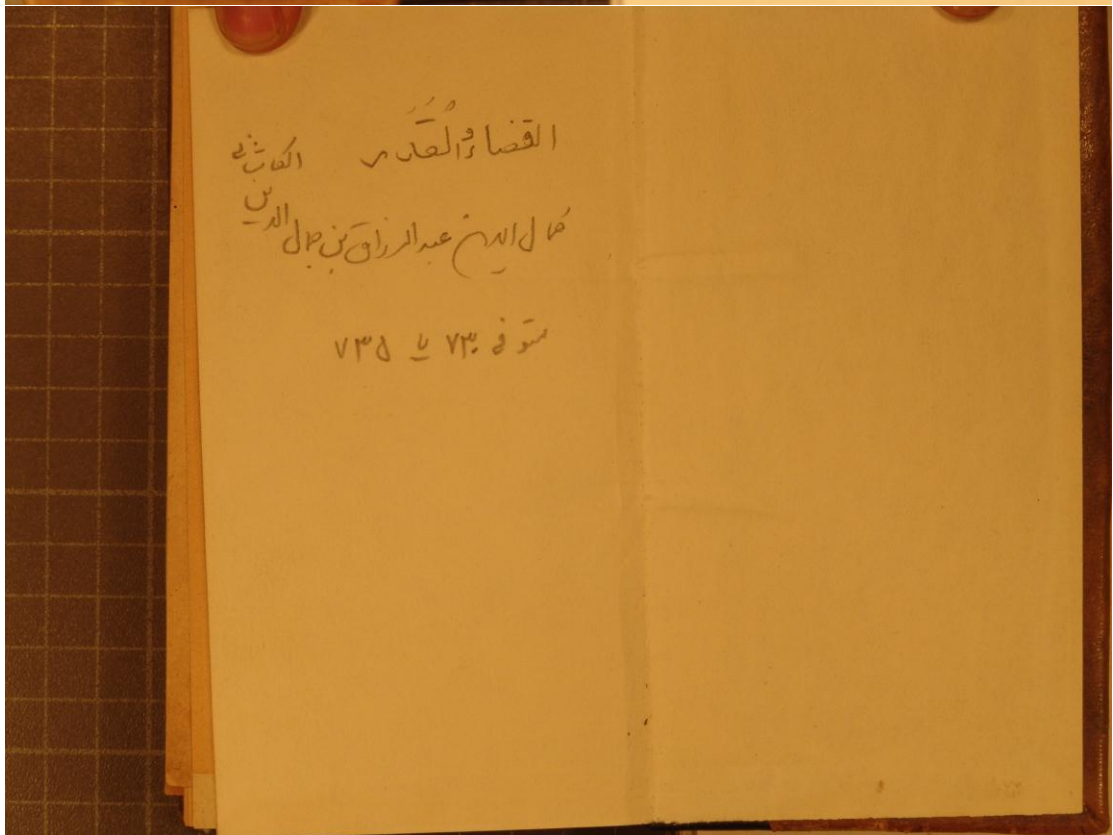 القضاء والقَدَر الكاشي
كمال الدين عبد الرزاق بن جمال الدين
متوفى ٧٣٠ یا ٧٣۵